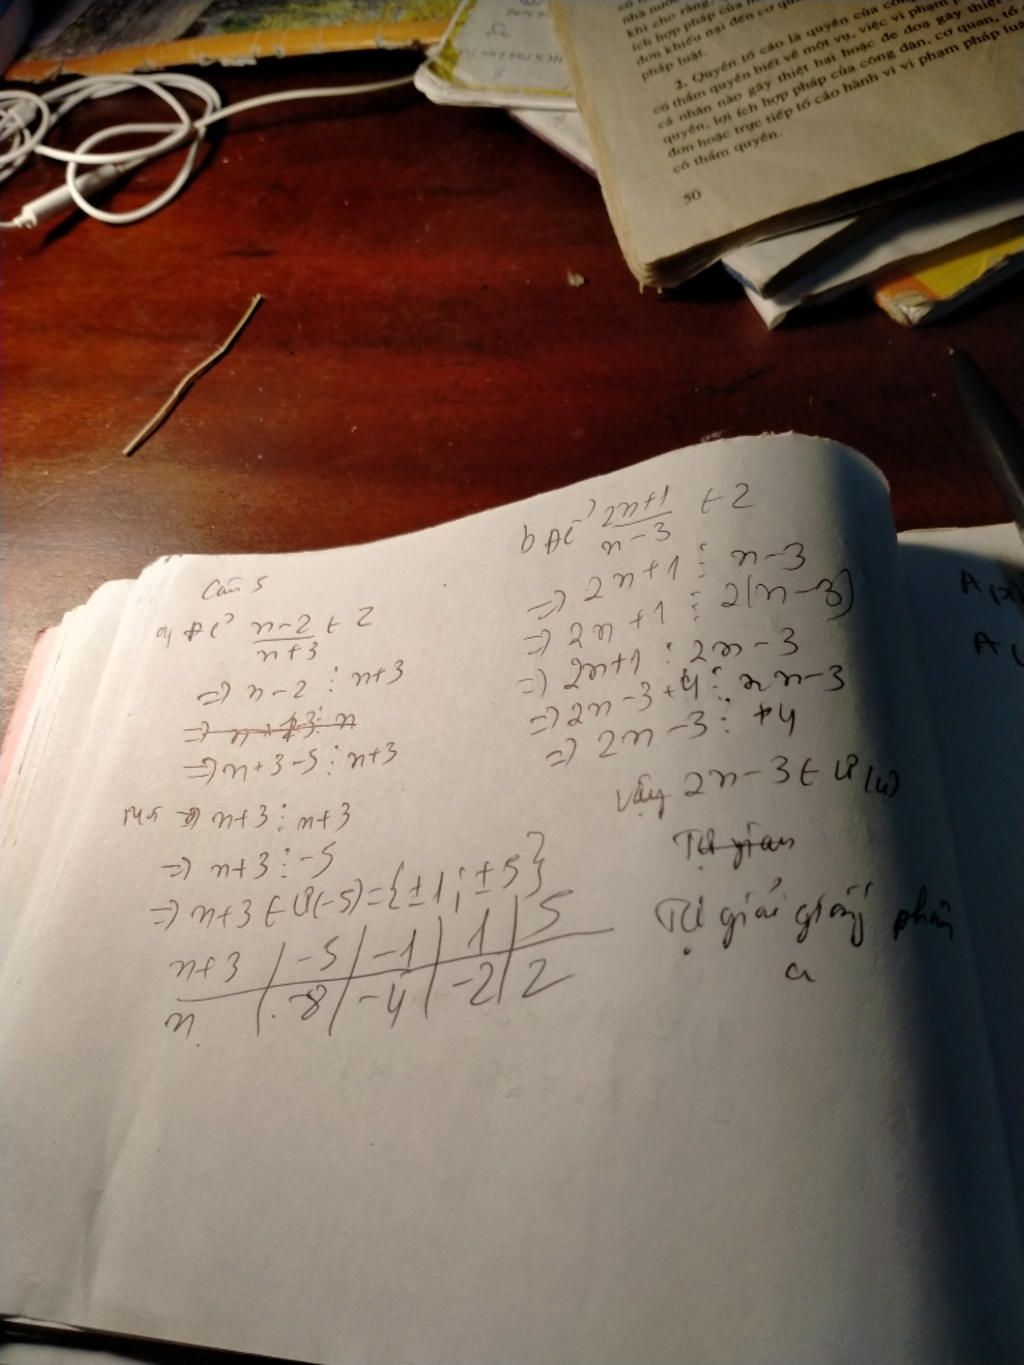 pháp luật.
2. Quyền tố cáo là quyền của công
có thẩm quyền biết về một vụ, việc vi phạm p
cá nhân nào gây thiệt hại hoặc đe doạ gây thiệt
quyền, lợi ích hợp pháp của công dân, cơ quan, tổ
đơn hoặc trực tiếp tố cáo hành vi vi phạm pháp luậ
có thẩm quyền.
50
Câu 5
a, Để n-2/n+3 ∈ Z
=> n-2 ⋮ n+3
=> n+3-5 ⋮ n+3
=> n+3 ⋮ n+3
=> n+3 ⋮ -5
=> n+3 ∈ Ư(-5) = {±1; ±5}
n+3 | -5 | -1 | 1 | 5
n | -8 | -4 | -2 | 2
b Để 2n+1/n-3 ∈ Z
=> 2n+1 ⋮ n-3
=> 2n+1 ⋮ 2(n-3)
=> 2n+1 ⋮ 2n-3
=> 2n-3+4 ⋮ 2n-3
=> 2n-3 ⋮ +4
Vậy 2n-3 ∈ Ư(4)
Tự giải giống phần
a
A(x)
A(